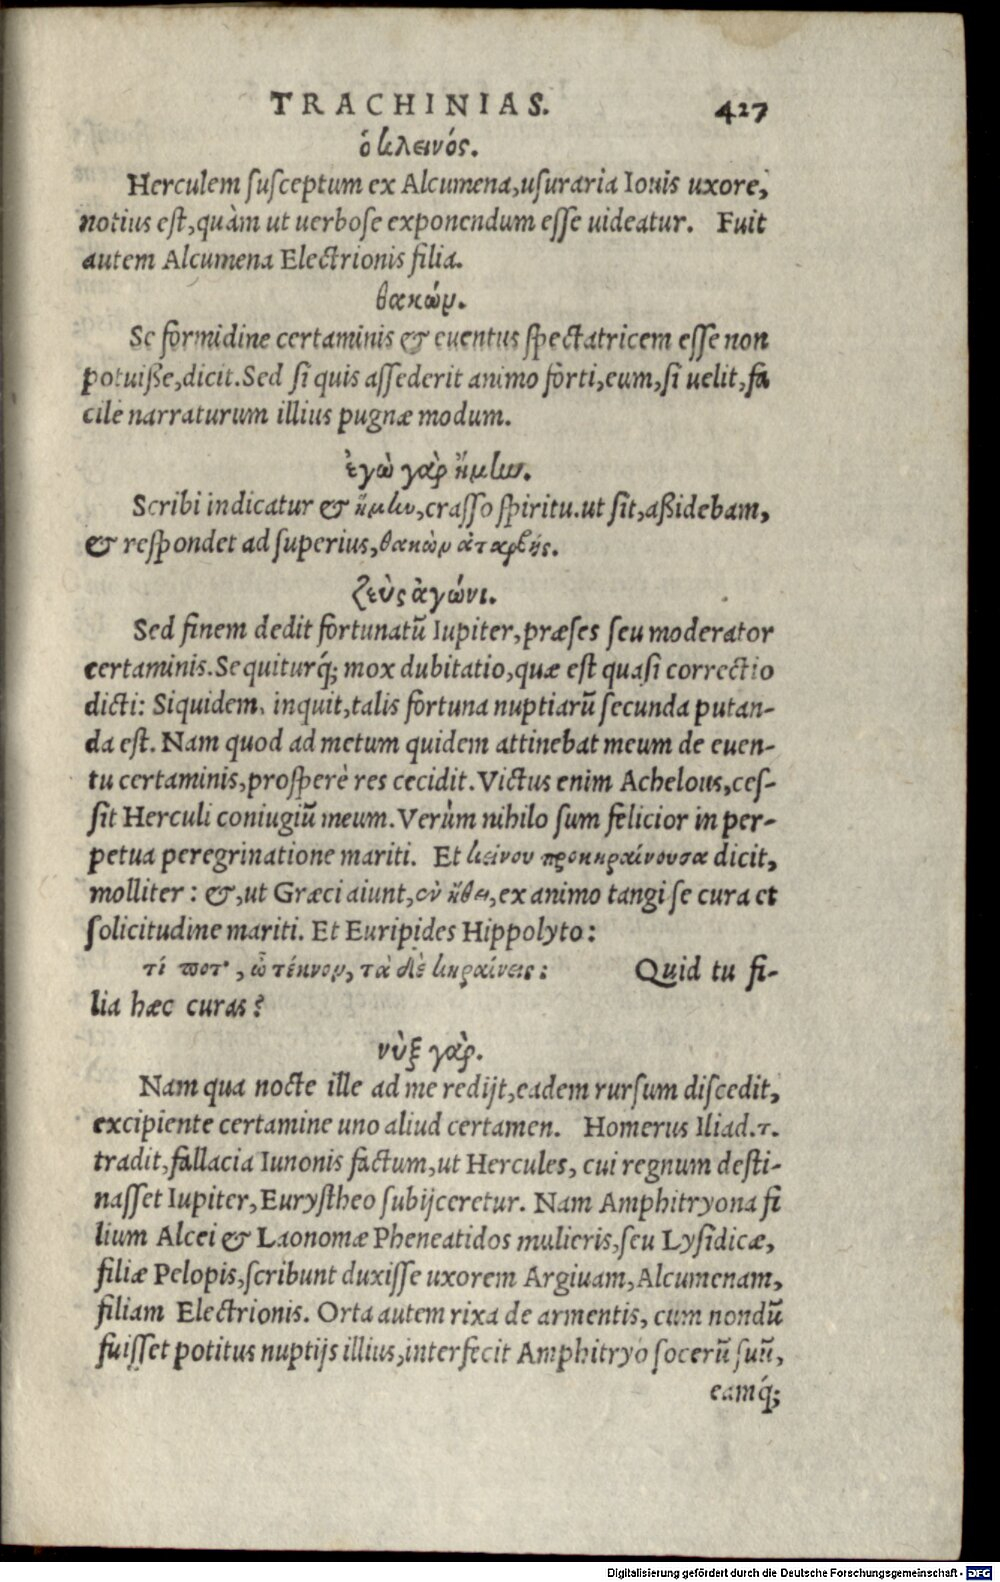 TRACHINIAS. 427
ὁ κλεινός.
Herculem ſuſceptum ex Alcumena,uſuraria Iouis uxore,
notius eſt,quàm ut uerboſe exponendum eſſe uideatur. Fuit
autem Alcumena Electrionis filia.
θακῶν.
Se formidine certaminis & euentus ſpectatricem eſſe non
potuiße,dicit.Sed ſi quis aſſederit animo forti,eum,ſi uelit,fa
cile narraturum illius pugnæ modum.
ἐγὼ γὰρ ἥμην.
Scribi indicatur & ἥμην,craſſo ſpiritu.ut ſit,aßidebam,
& reſpondet ad ſuperius,θακῶν ἀταρβής.
ζεὺς ἀγώνι.
Sed finem dedit fortunatū Iupiter,præſes ſeu moderator
certaminis.Sequiturq́; mox dubitatio,quæ eſt quaſi correctio
dicti: Siquidem, inquit,talis fortuna nuptiarū ſecunda putan-
da eſt. Nam quod ad metum quidem attinebat meum de euen-
tu certaminis,proſperè res cecidit. Victus enim Achelous,ceſ-
ſit Herculi coniugiū meum. Verùm nihilo ſum felicior in per-
petua peregrinatione mariti. Et κείνου προκηραίνουσα dicit,
molliter: &,ut Græci aiunt,ἐν ἤθει,ex animo tangi ſe cura et
ſolicitudine mariti. Et Euripides Hippolyto:
τί ποτ', ὦ τέκνον, τὰ δὲ κηραίνεις; Quid tu fi-
lia hæc curas?
νὺξ γὰρ.
Nam qua nocte ille ad me redijt,eadem rurſum diſcedit,
excipiente certamine uno aliud certamen. Homerus Iliad.τ.
tradit,fallacia Iunonis factum,ut Hercules, cui regnum deſti-
naſſet Iupiter,Euryſtheo ſubijceretur. Nam Amphitryona fi
lium Alcei & Laonomæ Pheneatidos mulieris,ſeu Lyſidicæ,
filiæ Pelopis,ſcribunt duxiſſe uxorem Argiuam,Alcumenam,
filiam Electrionis. Orta autem rixa de armentis, cum nondū
fuiſſet potitus nuptijs illius,interfecit Amphitryo ſocerū ſuū,
eamq́;
Digitalisierung gefördert durch die Deutsche Forschungsgemeinschaft - DFG